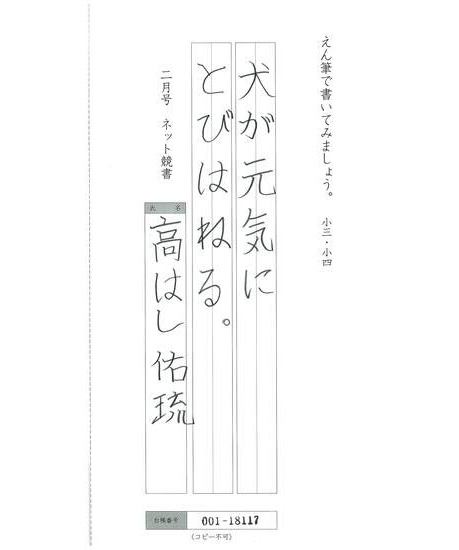 えん筆で書いてみましょう。 小三・小四
犬が元気に
とびはねる。
二月号 ネット競書
氏名
高はし佑琉
台帳番号 001-18117
(コピー不可)